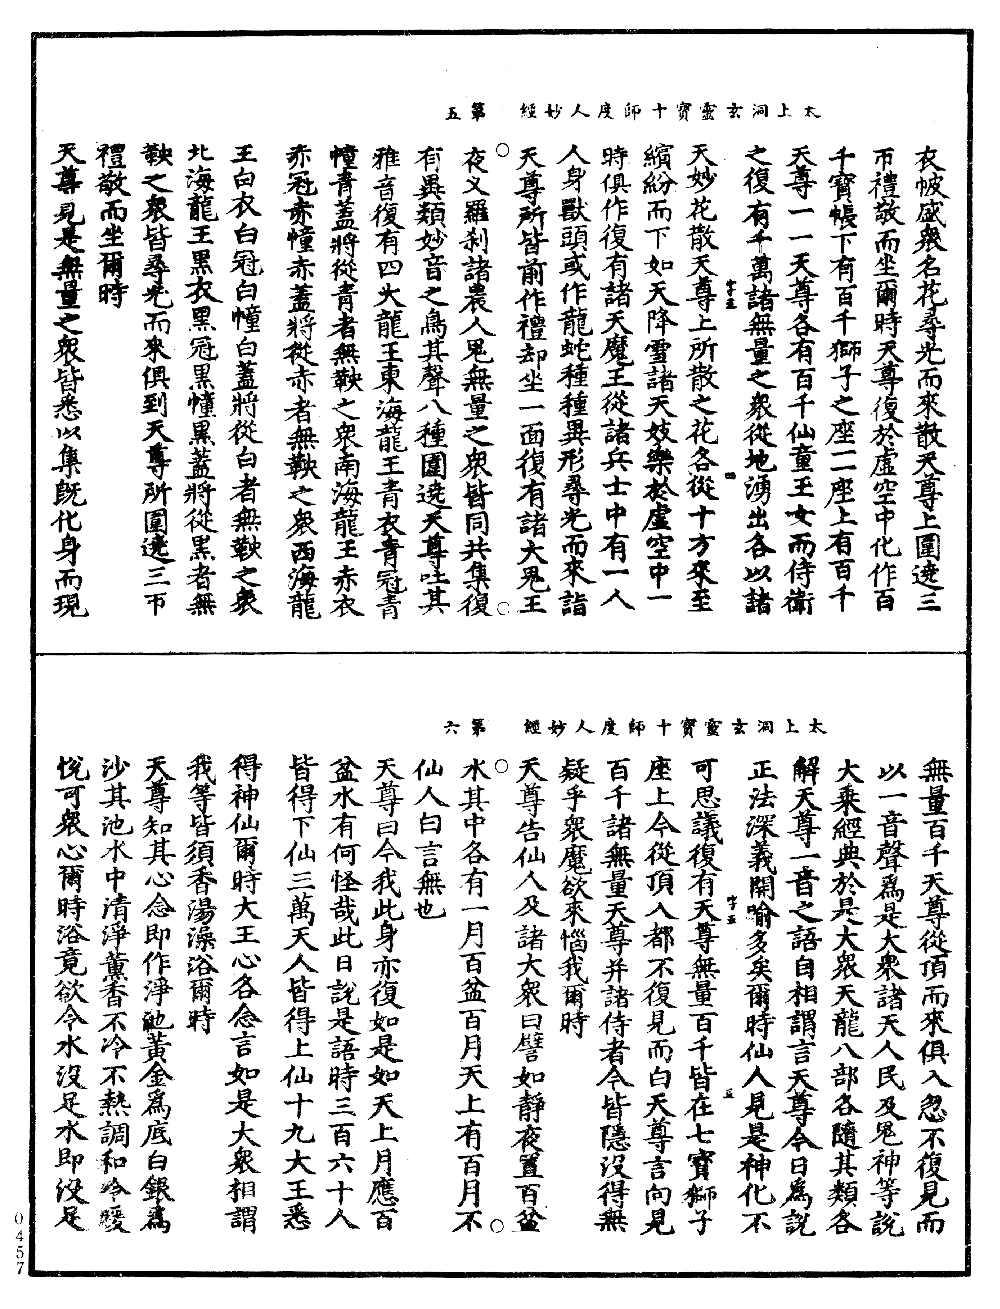 太上洞玄靈寶十師度人妙經　第五
衣帔盛衆名花尋光而來散天尊上圍遶三
帀禮敬而坐爾時天尊復於虛空中化作百
千寶帳下有百千獅子之座一一座上有百千
天尊一一天尊各有百千仙童玉女而侍衛
之復有千萬諸無量之衆從地湧出各以諸
字五
四
天妙花散天尊上所散之花各從十方來至
繽紛而下如天降雪諸天妓樂於虛空中一
時俱作復有諸天魔王從諸兵士中有一人
人身獸頭或作龍蛇種種異形尋光而來詣
天尊所皆前作禮却坐一面復有諸大鬼王
夜叉羅刹諸農人鬼無量之衆皆同共集復
有異類妙音之鳥其聲八種圍遶天尊吐其
雅音復有四大龍王東海龍王青衣青冠青
幢青蓋將從青者無鞅之衆南海龍王赤衣
赤冠赤幢赤蓋將從赤者無鞅之衆西海龍
王白衣白冠白幢白蓋將從白者無鞅之衆
北海龍王黑衣黑冠黑幢黑蓋將從黑者無
鞅之衆皆尋光而來俱到天尊所圍遶三帀
禮敬而坐爾時
天尊見是無量之衆皆悉以集既化身而現
太上洞玄靈寶十師度人妙經　第六
無量百千天尊從頂而來俱入忽不復見而
以一音聲爲是大衆諸天人民及鬼神等說
大乘經典於是大衆天龍八部各隨其類各
解天尊一音之語自相謂言天尊今日爲說
正法深義開喻多矣爾時仙人見是神化不
字五
五
可思議復有天尊無量百千皆在七寶獅子
座上今從頂入都不復見而白天尊言向見
百千諸無量天尊并諸侍者今皆隱没得無
疑乎衆魔欲來惱我爾時
天尊告仙人及諸大衆曰譬如靜夜置百盆
水其中各有一月百盆百月天上有百月不
仙人曰言無也
天尊曰今我此身亦復如是如天上月應百
盆水有何怪哉此日說是語時三百六十人
皆得下仙三萬天人皆得上仙十九大王悉
得神仙爾時大王心各念言如是大衆相謂
我等皆須香湯澡浴爾時
天尊知其心念即作淨池黃金爲底白銀爲
沙其池水中清淨薰香不冷不熱調和冷暖
悅可衆心爾時浴竟欲令水沒足水即沒足
0457